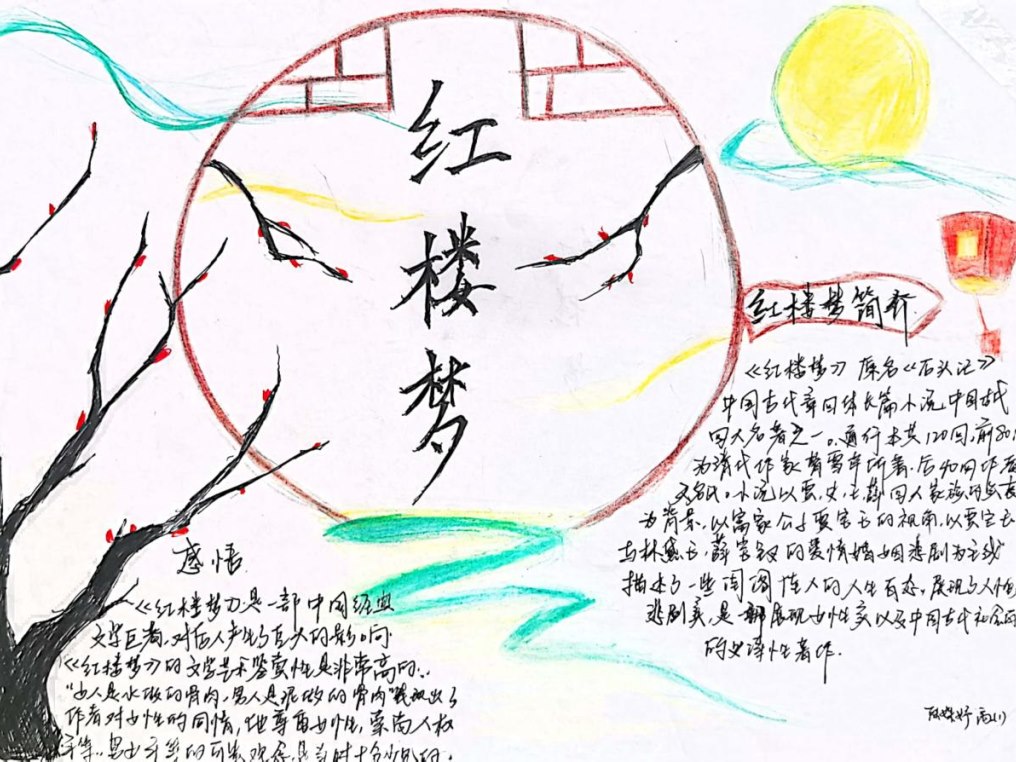 红
楼
梦
红楼梦简介
《红楼梦》原名《石头记》
中国古代章回体长篇小说,中国古代
四大名著之一。通行本共120回,前80
为清代作家曹雪芹所著,后40回作者
名氏。小说以贾、史、王、薛四大家族的
为背景,以富家公子贾宝玉的视角,以贾宝玉
与林黛玉、薛宝钗的爱情婚姻悲剧为主线
描述了一些闺阁佳人的人生百态,展现了人性
悲剧美,是一部展现女性美以及中国古代社会
的史诗性著作.
感悟
《红楼梦》是一部中国经典
文学巨著,对后人产生了巨大的影响
《红楼梦》的文学艺术鉴赏性是非常高的..
"女人是水做的骨肉,男人是泥做的骨肉"表现出了
作者对女性的同情,他尊重女性,崇尚人权
平等..
高(1)